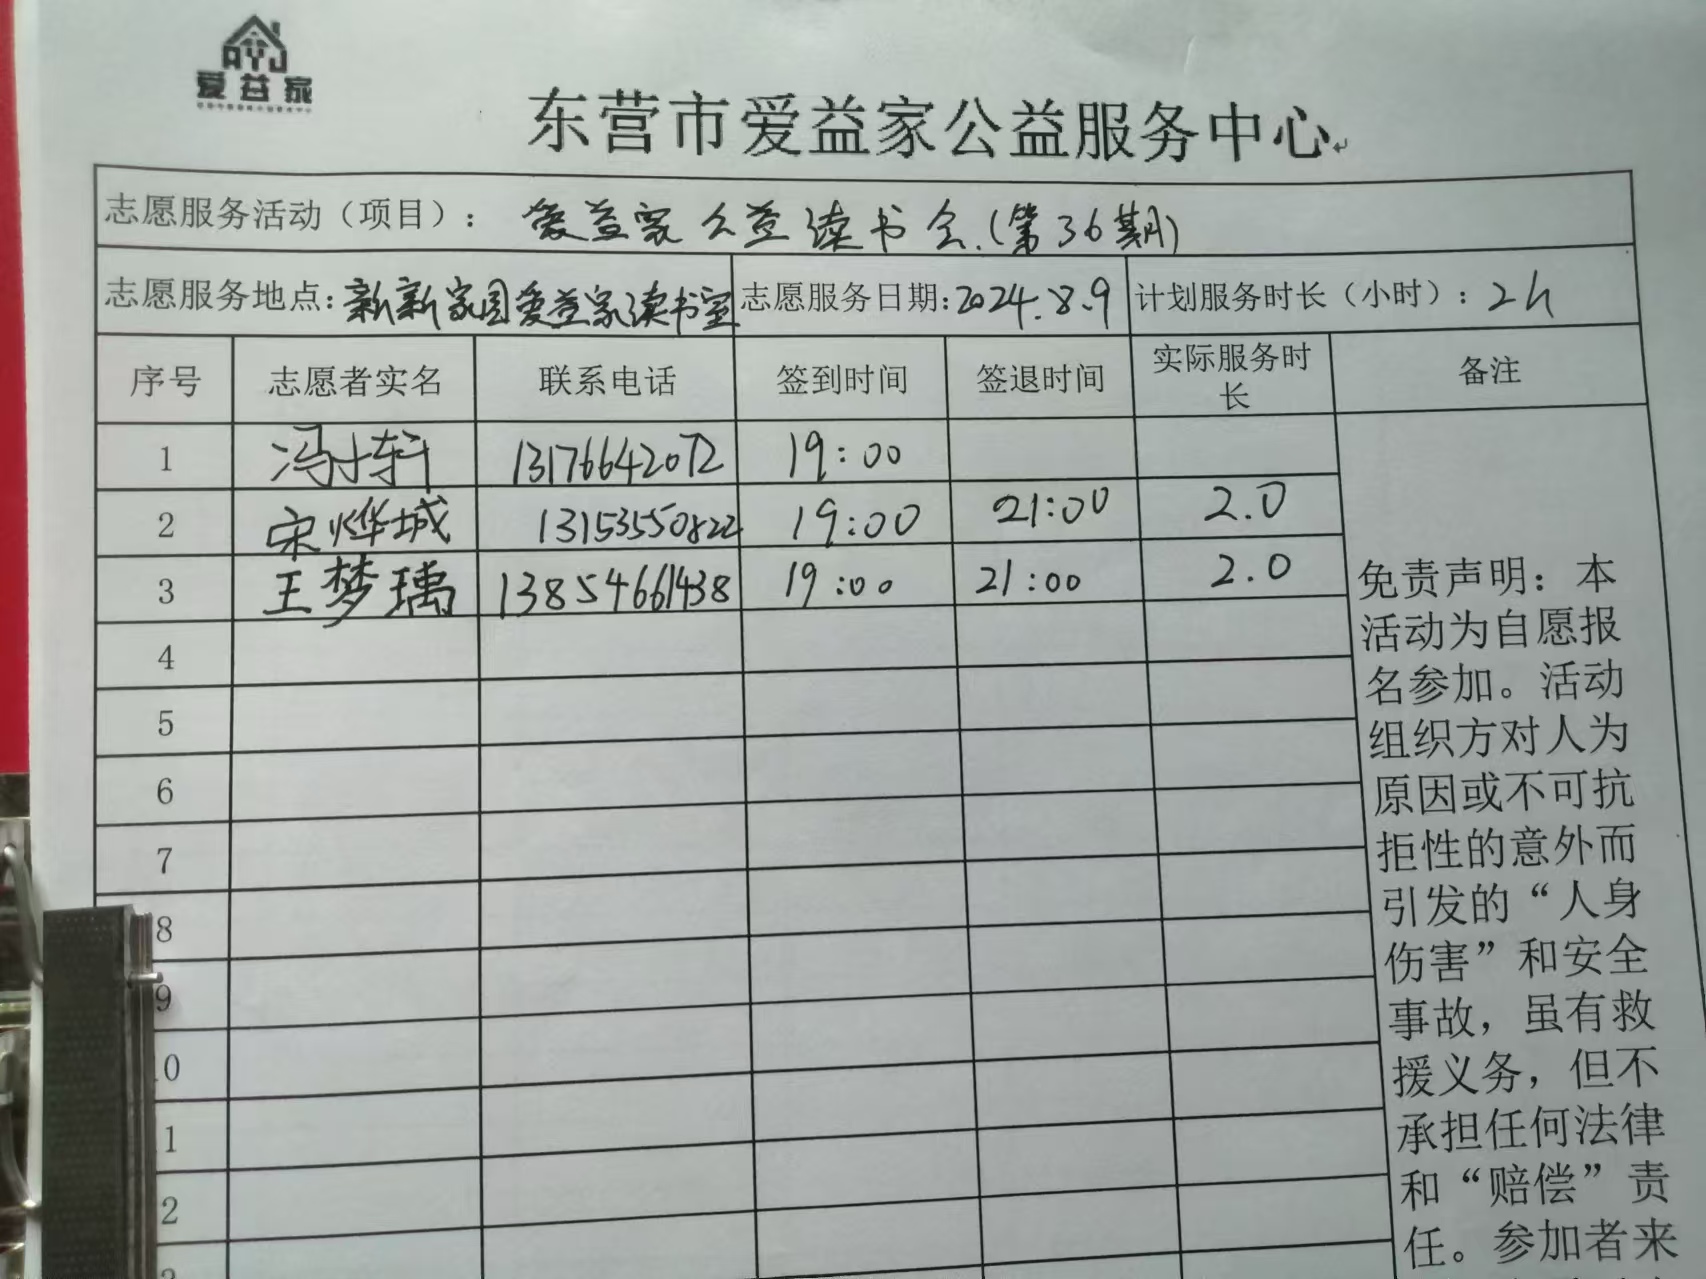 AYJ
爱益家
东营市爱益家公益服务中心
志愿服务活动（项目）：爱益家公益读书会.(第36期)
志愿服务地点：新新家园爱益家读书室 志愿服务日期：2024.8.9 计划服务时长（小时）：2h
序号 志愿者实名 联系电话 签到时间 签退时间 实际服务时长 备注
1 冯小轩 13176642072 19:00
2 宋烨城 13153550822 19:00 21:00 2.0
3 王梦瑀 13854661438 19:00 21:00 2.0
4
5
6
7
8
9
10
1
2
免责声明：本
活动为自愿报
名参加。活动
组织方对人为
原因或不可抗
拒性的意外而
引发的“人身
伤害”和安全
事故，虽有救
援义务，但不
承担任何法律
和“赔偿”责
任。参加者来